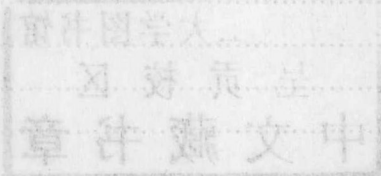 大学图书馆
呈贡校区
中文藏书章